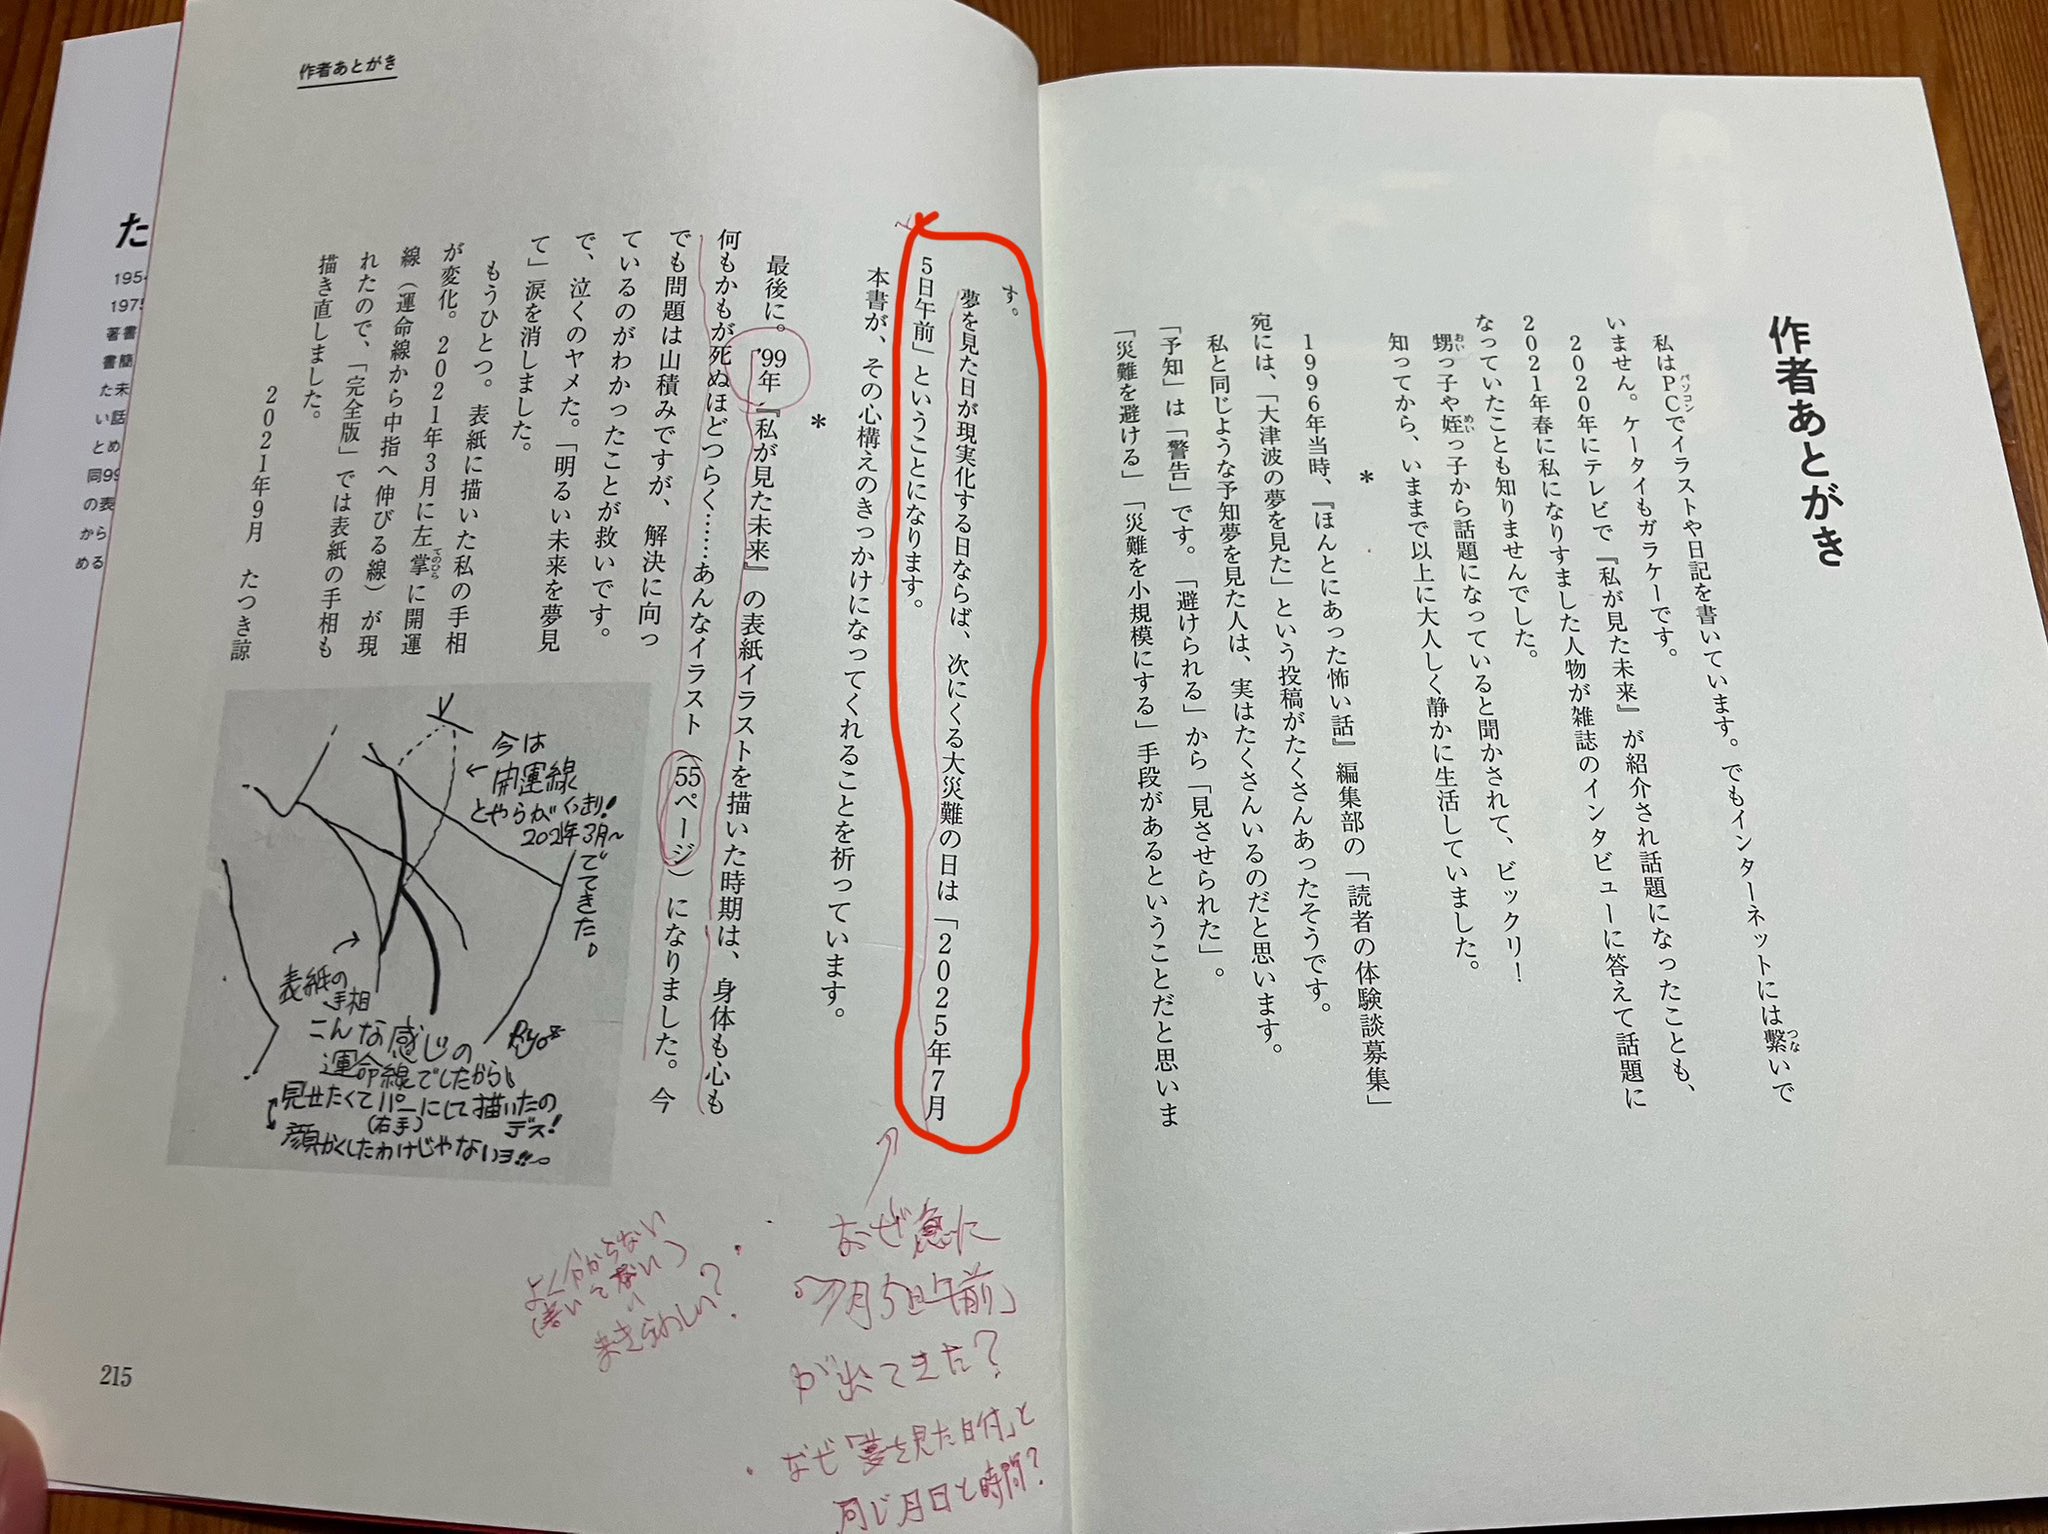 作者あとがき
私はPCでイラストや日記を書いています。でもインターネットには繋いで
パソコン
つな
いません。ケータイもガラケーです。
2020年にテレビで『私が見た未来』が紹介され話題になったことも、
2021年春に私になりすました人物が雑誌のインタビューに答えて話題に
なっていたことも知りませんでした。
甥っ子や姪っ子から話題になっていると聞かされて、ビックリ！
おい
めい
知ってから、いままで以上に大人しく静かに生活していました。
＊
1996年当時、『ほんとにあった怖い話』編集部の「読者の体験談募集」
宛には、「大津波の夢を見た」という投稿がたくさんあったそうです。
私と同じような予知夢を見た人は、実はたくさんいるのだと思います。
「予知」は「警告」です。「避けられる」から「見させられた」。
「災難を避ける」「災難を小規模にする」手段があるということだと思いま
作者あとがき
す。
夢を見た日が現実化する日ならば、次にくる大災難の日は「2025年7月
5日午前」ということになります。
本書が、その心構えのきっかけになってくれることを祈っています。
＊
最後に。'99年『私が見た未来』の表紙イラストを描いた時期は、身体も心も
何もかもが死ぬほどつらく……あんなイラスト（55ページ）になりました。今
でも問題は山積みですが、解決に向っ
ているのがわかったことが救いです。
で、泣くのヤメた。「明るい未来を夢見
て」涙を消しました。
もうひとつ。表紙に描いた私の手相
が変化。2021年3月に左掌に開運
てのひら
線（運命線から中指へ伸びる線）が現
れたので、「完全版」では表紙の手相も
描き直しました。
2021年9月　たつき諒
今は
開運線
とやらがくっきり!
2021年3月〜
でてきた。
表紙の
手相
こんな感じの
運命線でしたから
見せたくてパーにして描いたの
(右手)
デス!
顔かくしたわけじゃないヨ!!
215
なぜ急に
「7月5日午前」
が出てきた?
なぜ「夢を見た日付」と
同じ月日と時間?
よく分からない
(書いてない)
まぎらわしい?
た
1954
1975
著書
書簡
た未
い話
とめ
同99
の表
から
める